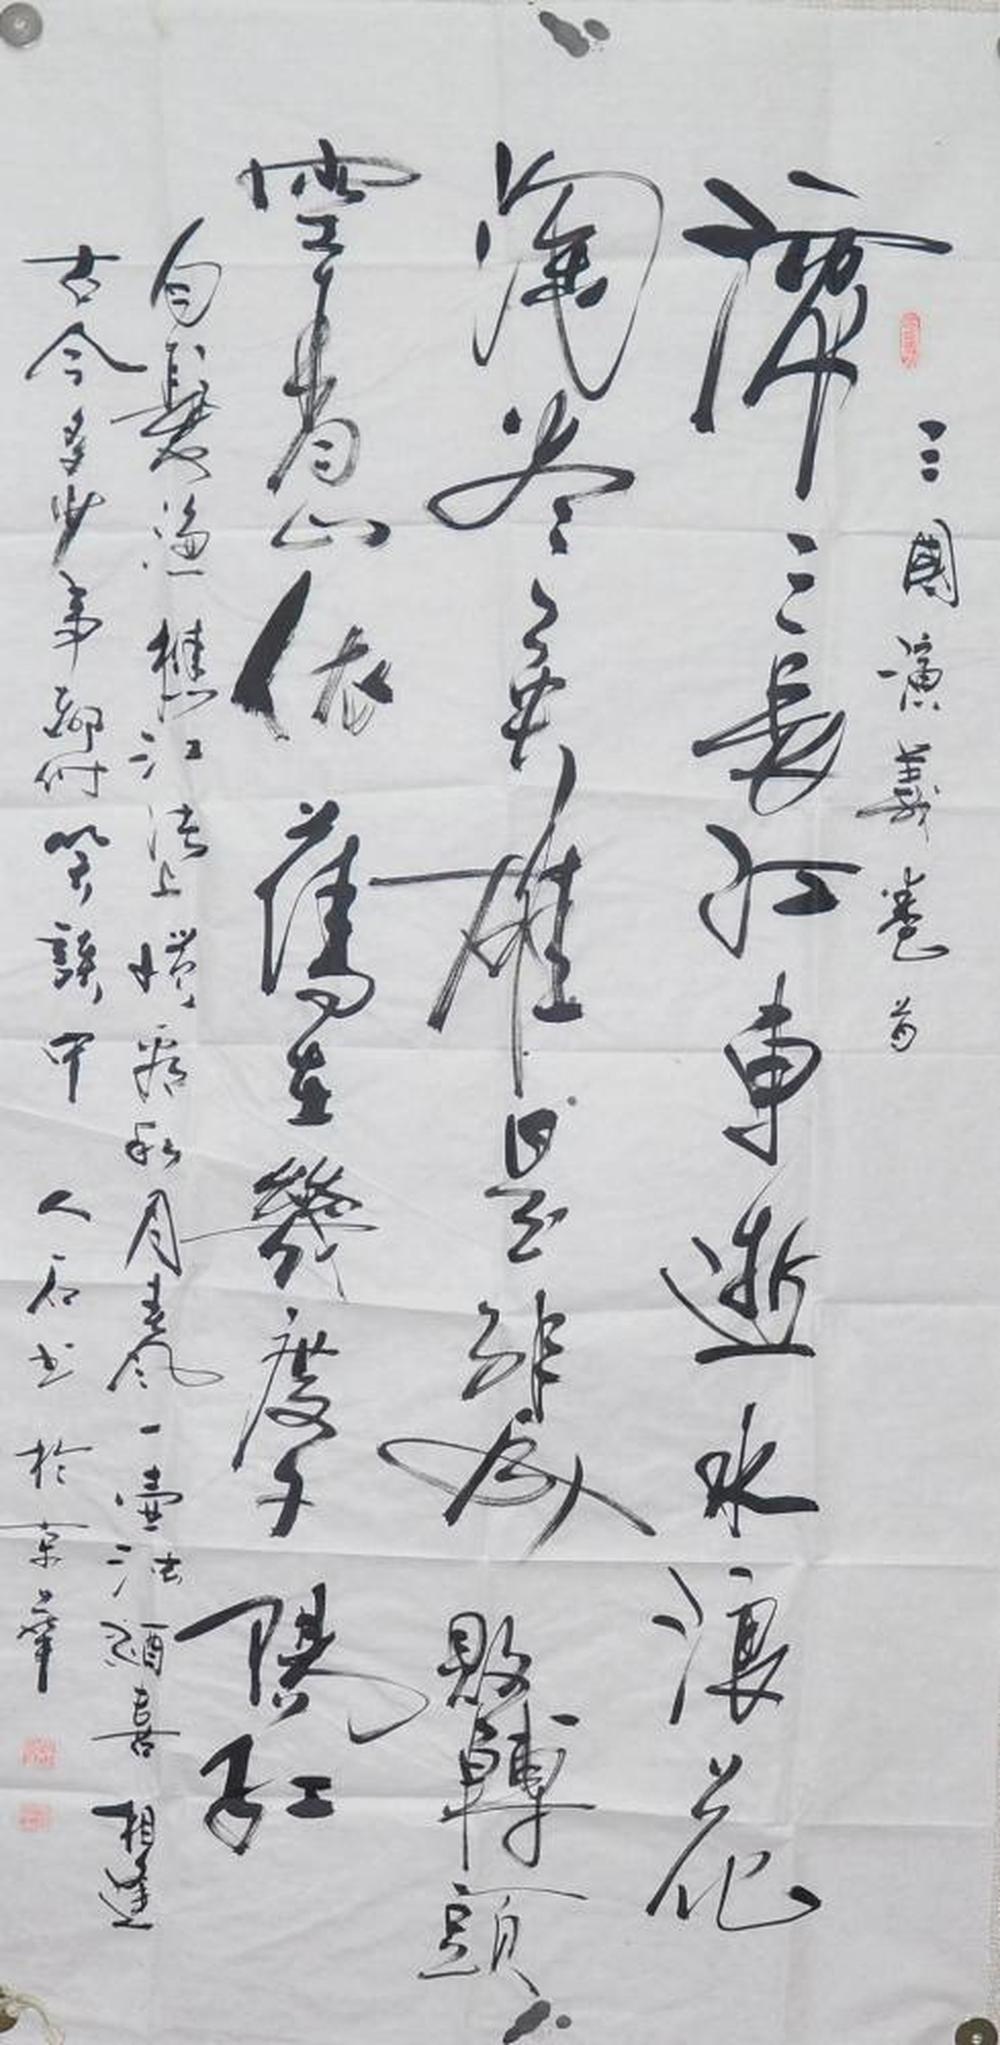 三國演義卷首
滾滾長江東逝水浪花
淘尽英雄是非成敗轉頭
空青山依舊在幾度夕陽紅
白髮漁樵江渚上慣看秋月春風一壺浊酒喜相逢
古今多少事都付笑談中 人石书 於京華